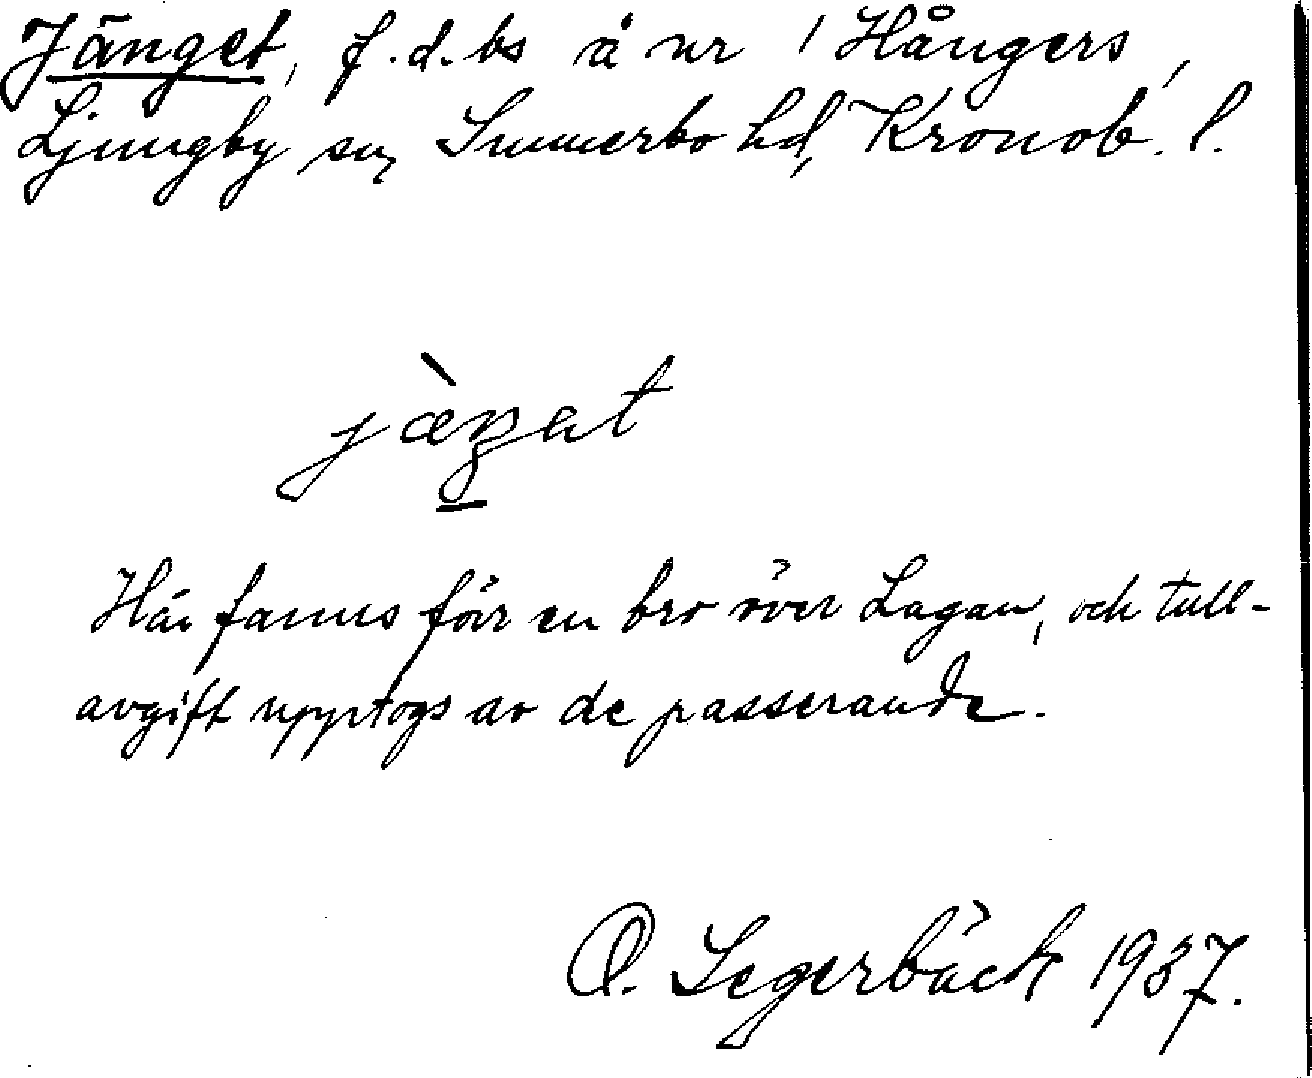 Jänget, f.d. bs å nr 1 Hångers,
Ljungby sn, Sunnerbo hd, Kronob. l.
jæ̀ŋat
Här fanns förr en bro över Lagan, och tull-
avgift upptogs av de passerande.
O. Segerbäck 1937.